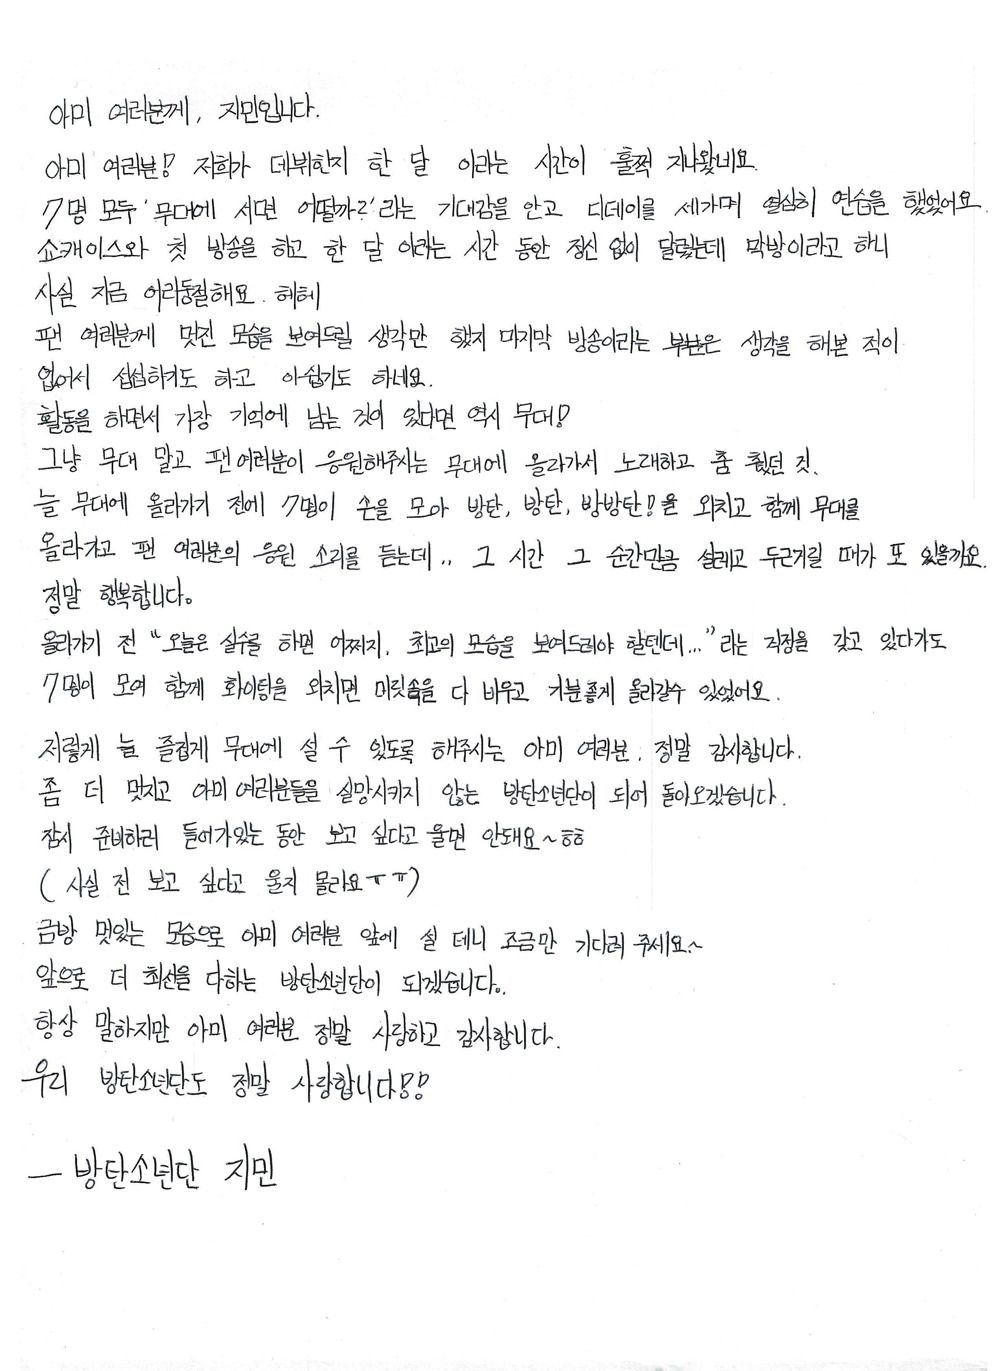 아미 여러분께, 지민입니다.
아미 여러분! 저희가 데뷔한지 한 달 이라는 시간이 훌쩍 지나왔네요.
7명 모두 '무대에 서면 어떨까?' 라는 기대감을 안고 디데이를 세가며 열심히 연습을 했었어요.
쇼캐이스와 첫 방송을 하고 한 달 이라는 시간 동안 정신 없이 달렸는데 막방이라고 하니
사실 지금 어리둥절해요. 헤헤
팬 여러분께 멋진 모습을 보여드릴 생각만 했지 마지막 방송이라는 부분은 생각을 해본 적이
없어서 섭섭하기도 하고 아쉽기도 하네요.
활동을 하면서 가장 기억에 남는 것이 있다면 역시 무대!
그냥 무대 말고 팬 여러분이 응원해주시는 무대에 올라가서 노래하고 춤 췄던 것.
늘 무대에 올라가기 전에 7명이 손을 모아 방탄, 방탄, 방방탄!을 외치고 함께 무대를
올라가고 팬 여러분의 응원 소리를 듣는데.. 그 시간 그 순간만큼 설레고 두근거릴 때가 또 있을까요.
정말 행복합니다.
올라가기 전 "오늘은 실수를 하면 어쩌지, 최고의 모습을 보여드려야 할텐데..." 라는 걱정을 갖고 있다가도
7명이 모여 함께 화이팅을 외치면 머릿속을 다 비우고 기분좋게 올라갈수 있었어요.
저렇게 늘 즐겁게 무대에 설 수 있도록 해주시는 아미 여러분, 정말 감사합니다.
좀 더 멋지고 아미 여러분들을 실망시키지 않는 방탄소년단이 되어 돌아오겠습니다.
잠시 준비하러 들어가있는 동안 보고 싶다고 울면 안돼요~ㅎㅎ
( 사실 전 보고 싶다고 울지 몰라요ㅜㅜ)
금방 멋있는 모습으로 아미 여러분 앞에 설 테니 조금만 기다려 주세요~
앞으로 더 최선을 다하는 방탄소년단이 되겠습니다.
항상 말하지만 아미 여러분 정말 사랑하고 감사합니다.
우리 방탄소년단도 정말 사랑합니다!!
— 방탄소년단 지민